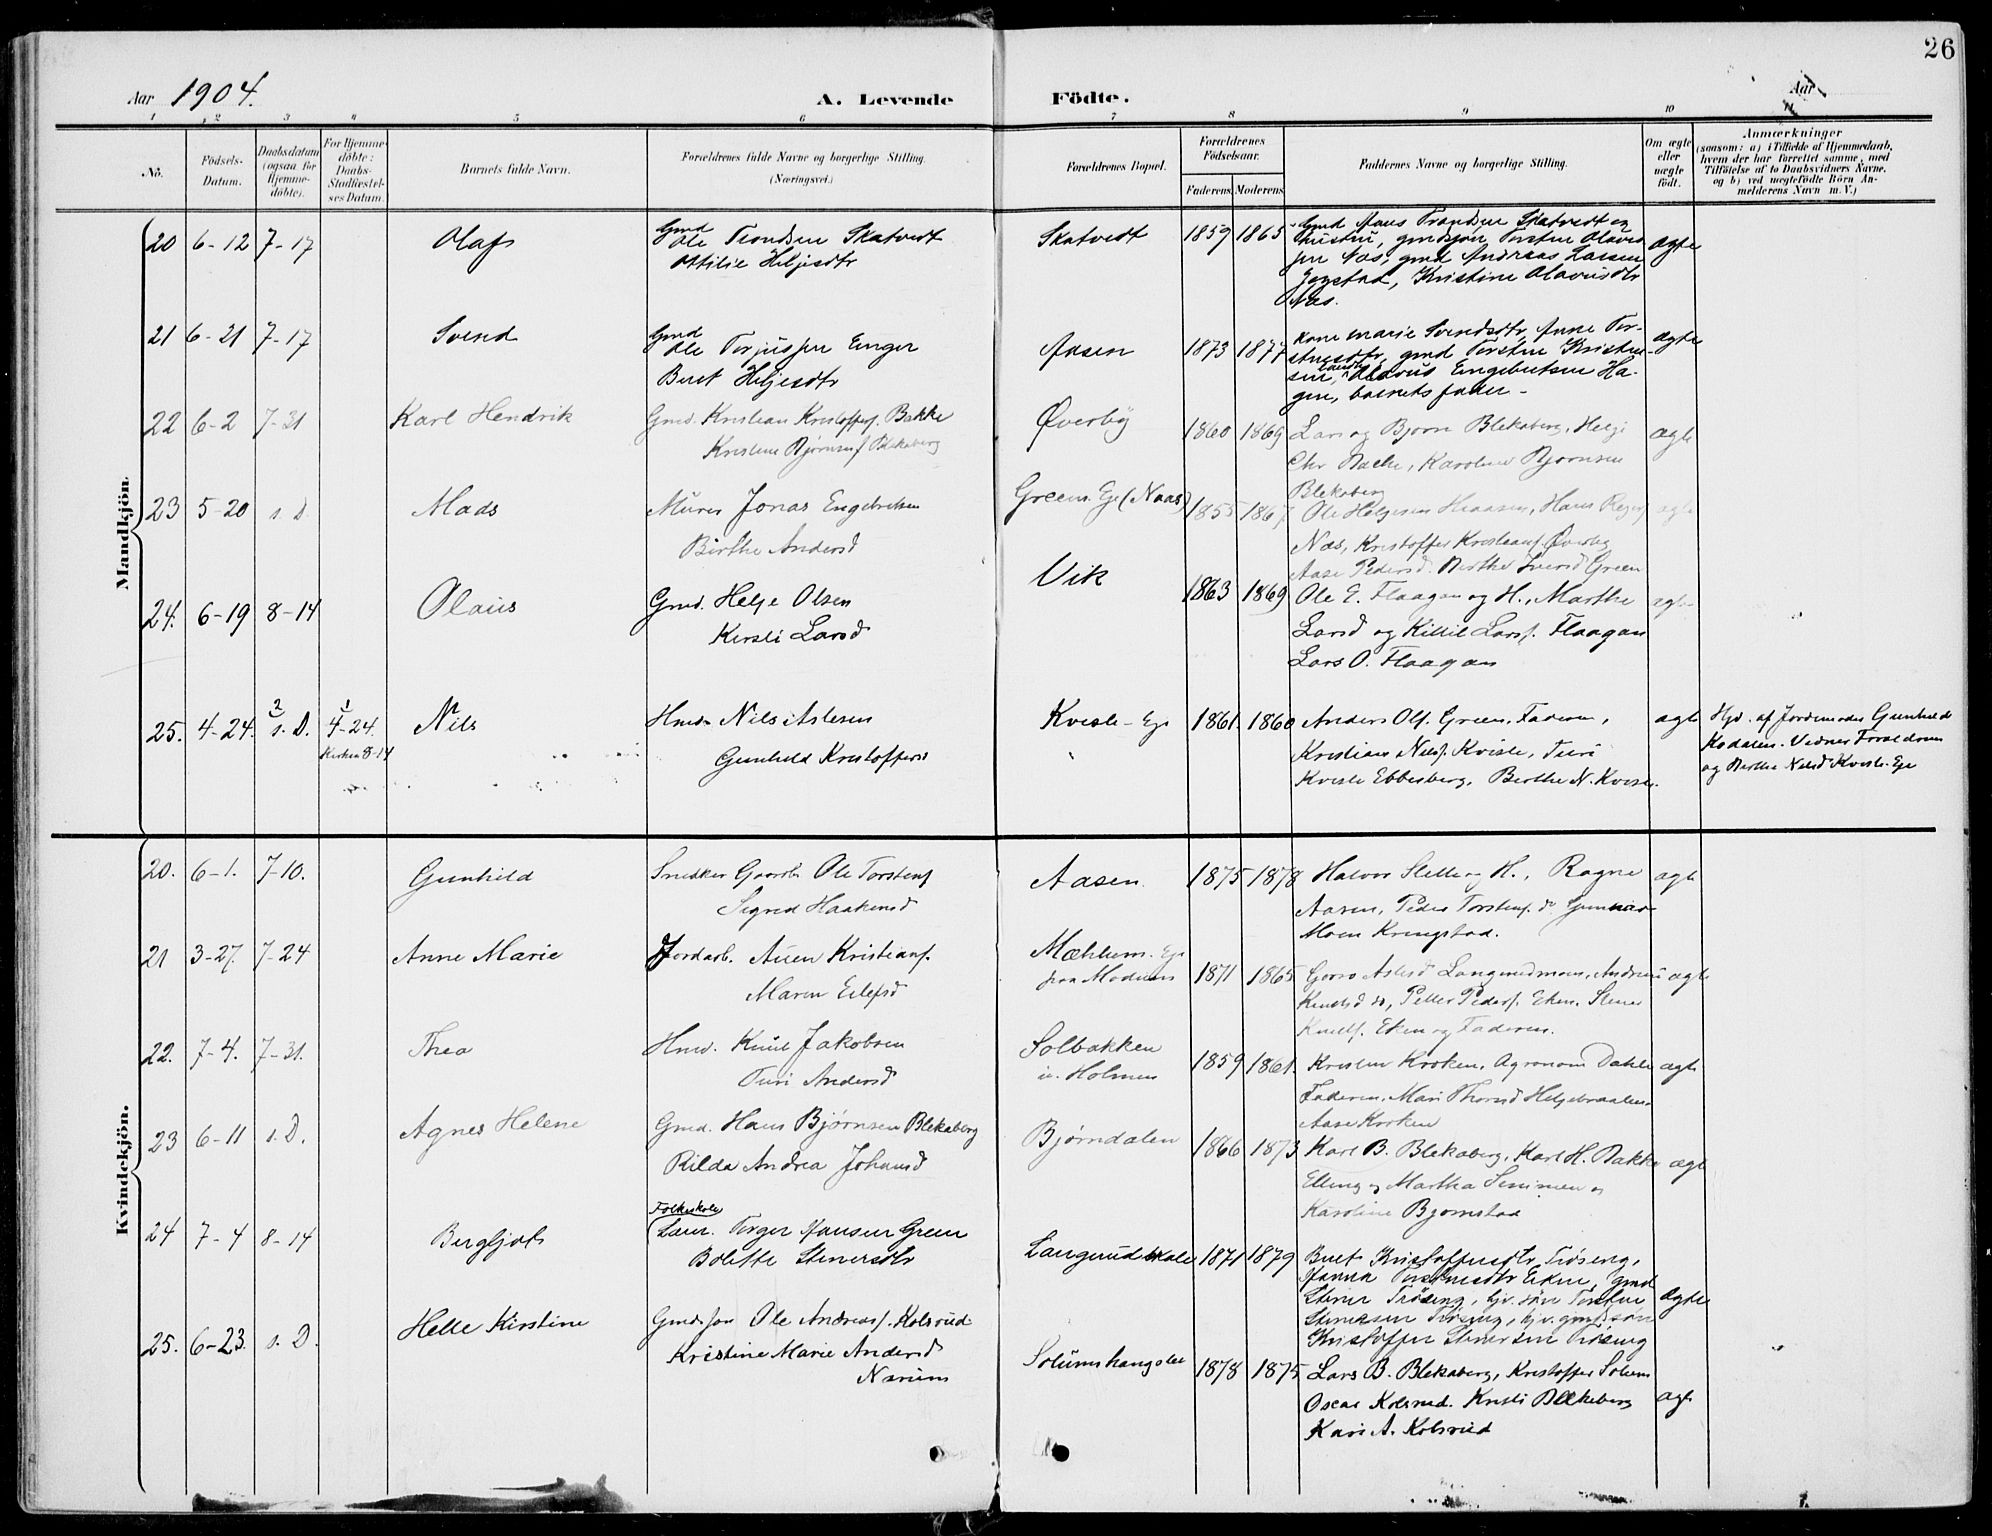 26
Aar 1904.
A. Levende Födte.
Aar
1 2 3 4 5 6 7 8 9 10 11
No.
Födsels-Datum.
Daabsdatum (ogsaa for Hjemmedöbte).
For Hjemmedöbte: Daabs-Stadfæstelses Datum.
Barnets fulde Navn.
Forældrenes fulde Navne og borgerlige Stilling. (Næringsvei.)
Forældrenes Bopæl.
Forældrenes Födselsaar.
Faderens Moderens
Faddernes Navne og borgerlige Stilling.
Om ægte eller uægte født.
Anmærkninger
(saasom: a) i Tilfælde af Hjemmedaab,
hvem der har forrettet samme, med
Tilföielse af to Daabsvidners Navne,
og b) ved uægtefödte Börn Anmelderens Navn m. V.)
Mandkjön.
20 6-12 7-17 Olaf Gmd Ole Trondsen Skatvedt
Ottilie Heljesdtr
Skatvedt 1859 1865 Gmd Hans Trondsen Skatvedt og
hustru, gmdsøn Torsten Olavussen
Næs, gmd Andreas Larsen
Jegstad, Kristine Olavusdtr
Næs.
ægte
21 6-21 7-17 Svend Gmd Ole Torjussen Enger
Beret Heljesdtr
Aasen 1873 1877 Kone Marie Svendsdtr, Anne Torstensdtr,
gmd Torsten Kristensen,
Landh. Olavus Engebretsen Hagen,
barnets fader -
ægte
22 6-2 7-31 Karl Hendrik Gmd. Kristian Kristoffers. Bakke
Kristine Bjørnsd Blekaberg
Øverby 1860 1869 Lars og Bjørn Blekaberg, Helge
Chr Bache, Karoline Bjørnsen
Blekaberg
ægte
23 5-20 s. D. Mads Murer Jonas Engebretsen
Birthe Andersd
Green Eje (Næs) 1855 1867 Ole Helgesen Haasen, Hans
Næs, Kristoffer Kristians. Øverby
Aase Pedersd. Berthe Iversd Green
ægte
24. 6-19 8-14 Olaus Gmd. Helje Olsen
Kirsti Larsd
Vik 1863 1869 Ole E. Flaagan og H., Marthe
Larsd og Kittil Larss. Flaagan
Lars O. Flaagan
ægte
25. 4-24. 2 s. D. 1 4-24. Kirken 8-14 Nils Hmd. Nils Aslesen
Gunhild Kristoffersd
Kvisle-Eje 1861. 1860 Anders Ols. Green, Faderen,
Kristian Nilss. Kvisle, Turi
Kvisle Ebbesberg, Berthe N. Kvisle.
ægte Hjd. af Jordemoder Gunhild
Kodalen. Vidner Forældrene
og Berthe Nilsd Kvisle-Eje
Kvindekjön.
20. 6-1. 7-10. Gunhild Snedker Gaardb. Ole Torstens.
Sigrid Haakensd
Aasen. 1875 1878 Halvor Slette og H., Ragne
Aasen, Peder Torstens. do Gunnar
Moen Kringstad.
ægte
21 3-27. 7-24 Anne Marie Jordarb. Auen Kristians.
Maren Eilefsd
Mæhlum. Eje
paa Modum
1871 1865 Goro Aslesd Langerudmoen, Andrine
Knudsd do, Petter Peders. Eken, Stener
Knuts. Eken og Faderen.
ægte
22. 7-4. 7-31. Thea Hmd. Knut Jakobsen
Turi Andersd
Solbakken
u. Holmen
1859 1861. Kristen Kroken, Agronom Dahle
Faderen, Mari Thorsd Heljebraaten.
Aase Kroken
ægte
23 6-11 s. D. Agnes Helene Gmd. Hans Bjørnsen Blekaberg
Rilda Andrea Johansd
Bjørndalen 1866 1873 Karl B. Blekaberg, Karl H. Bakke
Elling og Martha Simensen og
Karoline Bjørnstad
ægte
24 7-4 8-14 Bergljot Folkeskole
Lær. Torger Hansen Green
Bolette Stenersdtr
Langerud skole 1871 1879 Beret Kristoffersdtr Trøseng,
Hanna Torstensdtr Eken, gmd
Stener Trøseng, hjv. søn Torsten
Stenersen Trøseng, hjv. gmdssøn
Kristoffer Stenersen Trøseng
ægte
25. 6-23. s. D. Helle Kirstine Gmdssøn Ole Andreas. Kolsrud
Kristine Marie Andersd
Narum
Solumshaugslet 1878 1875 Lars B. Blekaberg, Kristoffer Solum
Oscar Kolsrud. Kristi Blekeberg
Kari A. Kolsrud
ægte